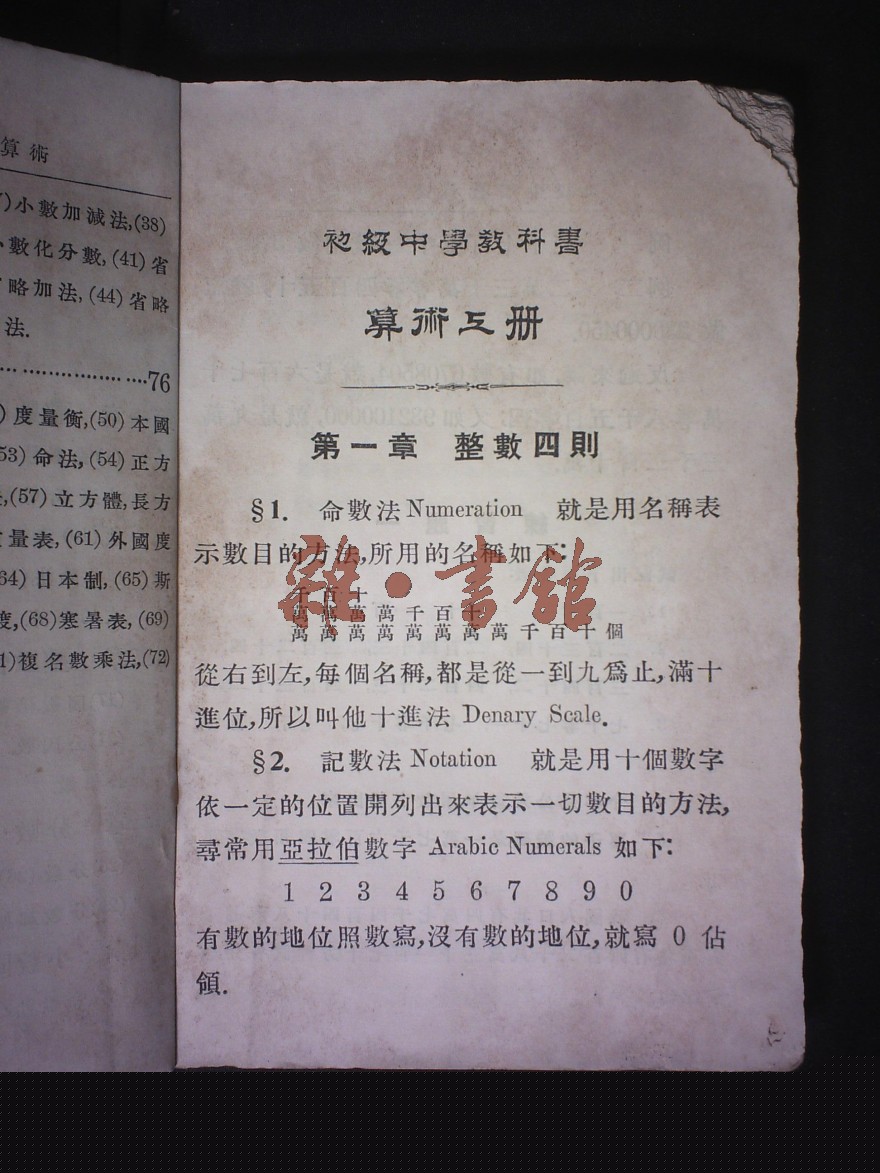 算術
)小數加減法,(38)
數化分數,(41)省
略加法,(44)省略
法.
76
度量衡,(50)本國
53)命法,(54)正方
,(57)立方體,長方
量表,(61)外國度
64)日本制,(65)斯
度,(68)寒暑表,(69)
1)複名數乘法,(72)
初級中學教科書
算術上册
第一章 整數四則
§1. 命數法 Numeration 就是用名稱表
示數目的方法,所用的名稱如下:
千百十
萬萬萬萬千百十
萬萬萬萬萬萬萬萬千百十個
從右到左,每個名稱,都是從一到九爲止,滿十
進位,所以叫他十進法 Denary Scale.
§2. 記數法 Notation 就是用十個數字
依一定的位置開列出來表示一切數目的方法,
尋常用亞拉伯數字 Arabic Numerals 如下:
1 2 3 4 5 6 7 8 9 0
有數的地位照數寫,沒有數的地位,就寫 0 佔
領.
雜·書館